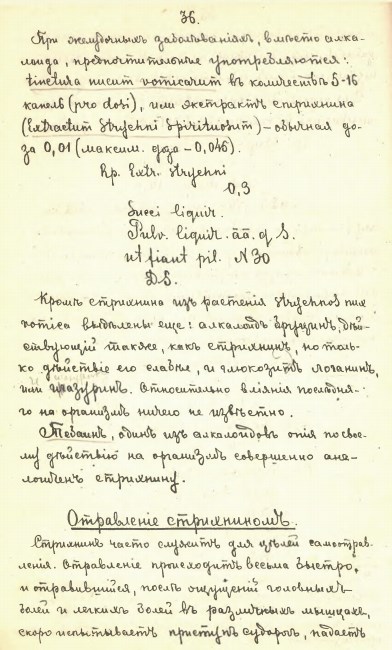 36.
При желудочныхъ заболѣваніяхъ, вмѣсто алка-
лоида, предпочтительнѣе употребляются:
tinctura nucum vomicarum въ количествѣ 5-16
капель (pro dosi), или экстрактъ стрихнина
(Extractum Strychni Spirituosum) – обычная до-
за 0,01 (максим. доза – 0,046).
Rp. Extr. Strychni
0,3
Succi liquir.
Pulv. liquir. āā. q S.
ut fiant pil. N 30
D.S.
Кромѣ стрихнина изъ растенія Strychnos nux
vomica выдѣлены еще: алкалоидъ бруцинъ, дѣй-
ствующій также, какъ стрихнинъ, но толь-
ко дѣйствіе его слабѣе, и глюкозитъ логанинъ,
или Относительно вліянія послѣдня-
го на организмъ ничего не извѣстно.
Тебаинъ, одинъ изъ алкалоидовъ опія по свое-
му дѣйствію на организмъ совершенно ана-
логиченъ стрихнину.
Отравленіе стрихниномъ.
Стрихнинъ часто служитъ для цѣлей самоотрав-
ленія. Отравленіе происходитъ весьма быстро,
и отравившійся, послѣ ощущеній головныхъ
болей и легкихъ болей въ различныхъ мышцахъ,
скоро испытываетъ приступъ судорогъ, падаетъ